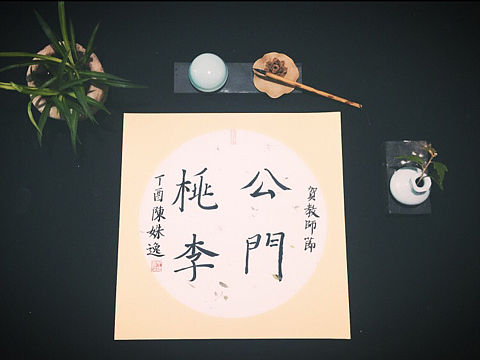 賀教師節
公門
桃李
丁酉陳姝逸